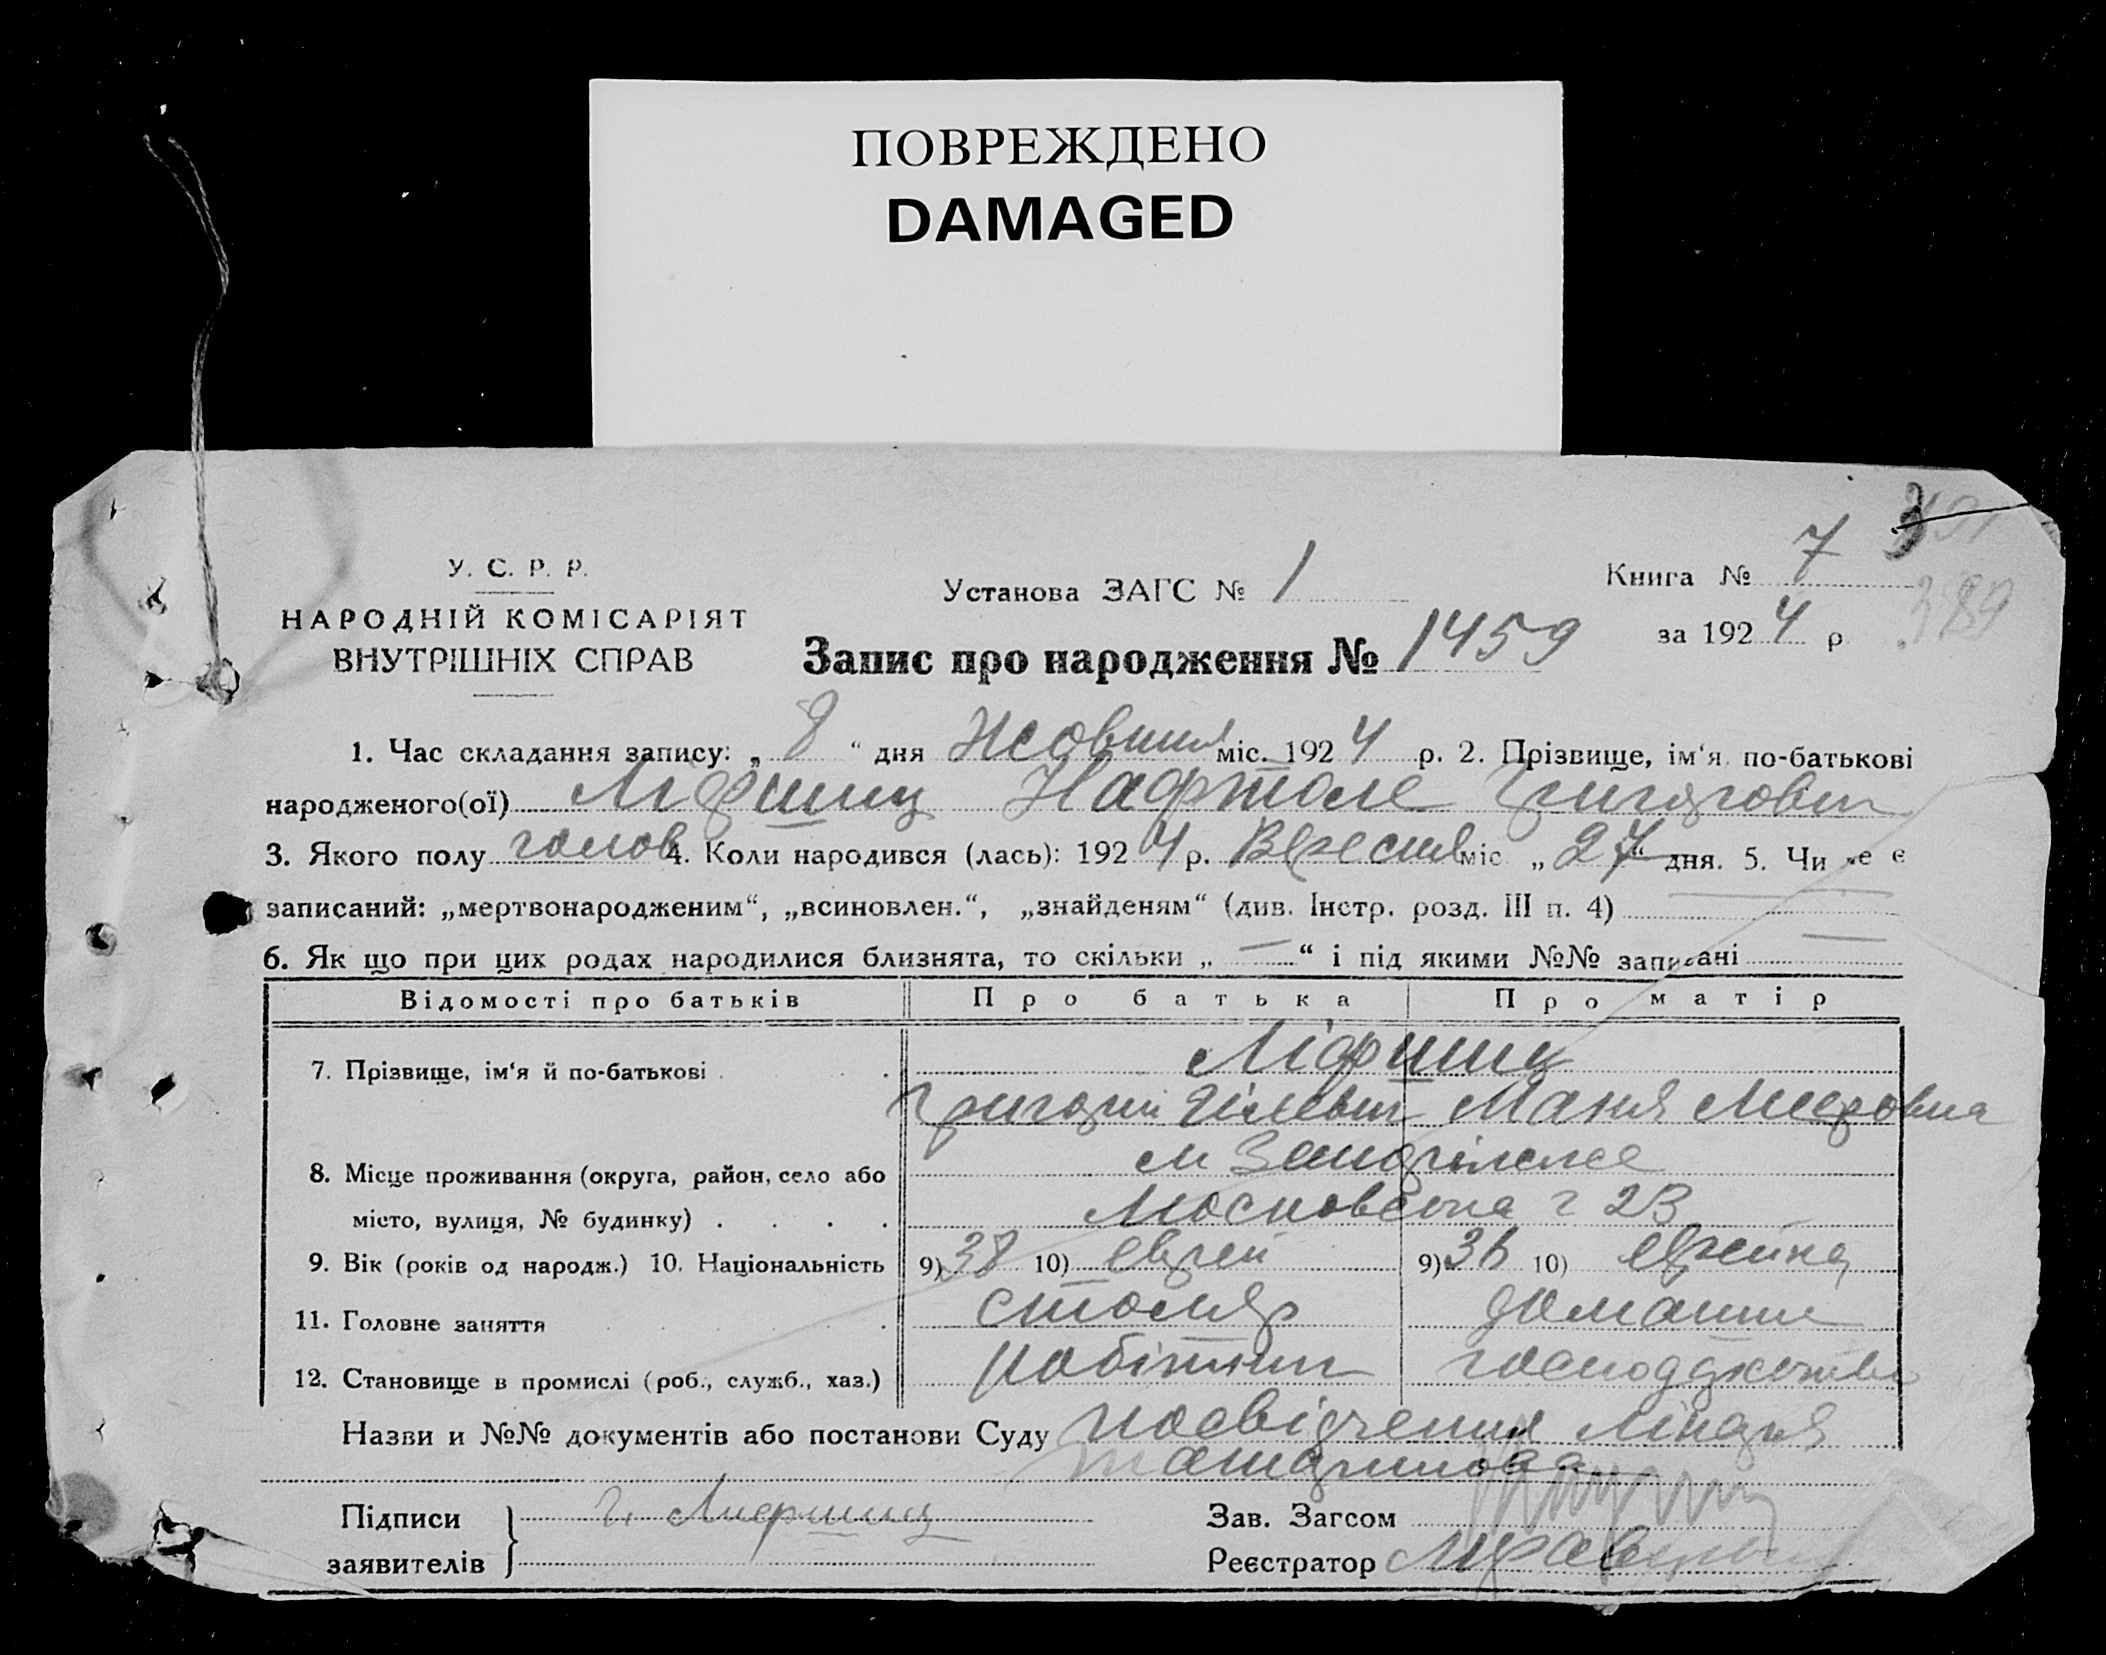 ПОВРЕЖДЕНО
DAMAGED
У. С. Р. Р.
НАРОДНІЙ КОМІСАРІЯТ
ВНУТРІШНІХ СПРАВ
Установа ЗАГС № 1
Книга № 7
за 1924 р
389
Запис про народження № 1459
1. Час складання запису: „ 8 “ дня Жовтня міс. 1924 р. 2. Прізвище, ім'я по-батькові
народженого(ої) Ліфшиц Нафтоле Григорович
3. Якого полу голов 4. Коли народився (лась): 1924 р. Вересня міс „ 27 “ дня. 5. Чи не є
записаний: „мертвонародженим“, „всиновлен.“, „знайденям“ (див. Інстр. розд. III п. 4) —
6. Як що при цих родах народилися близнята, то скільки „ — “ і під якими №№ записані —
Відомості про батьків Про батька Про матір
7. Прізвище, ім'я й по-батькові Ліфшиц
Григорий Маня Меєровна
8. Місце проживання (округа, район, село або м
місто, вулиця, № будинку) Московська 23
9. Вік (років од народж.) 10. Національність 9) 38 10) еврей 9) 36 10) еврейка
11. Головне заняття столяр домашнє
12. Становище в промислі (роб., служб., хаз.) робітник господарство
Назви и №№ документів або постанови Суду посвідчення лікаря
Підписи
заявителів Г. Лифшиц
Зав. Загсом
Реєстратор